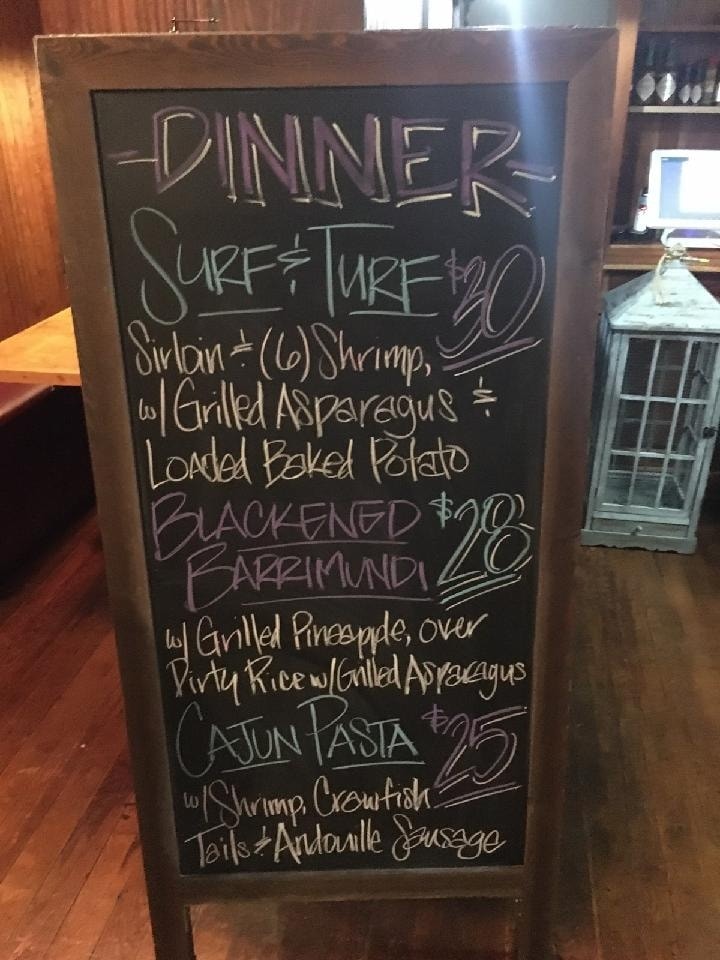 -DINNER-
SURF & TURF $30
Sirloin & (6) Shrimp,
w/ Grilled Asparagus &
Loaded Baked Potato
BLACKENED $28
BARRIMUNDI
w/ Grilled Pineapple, over
Dirty Rice w/ Grilled Asparagus
CAJUN PASTA $25
w/ Shrimp, Crawfish
Tails & Andouille Sausage